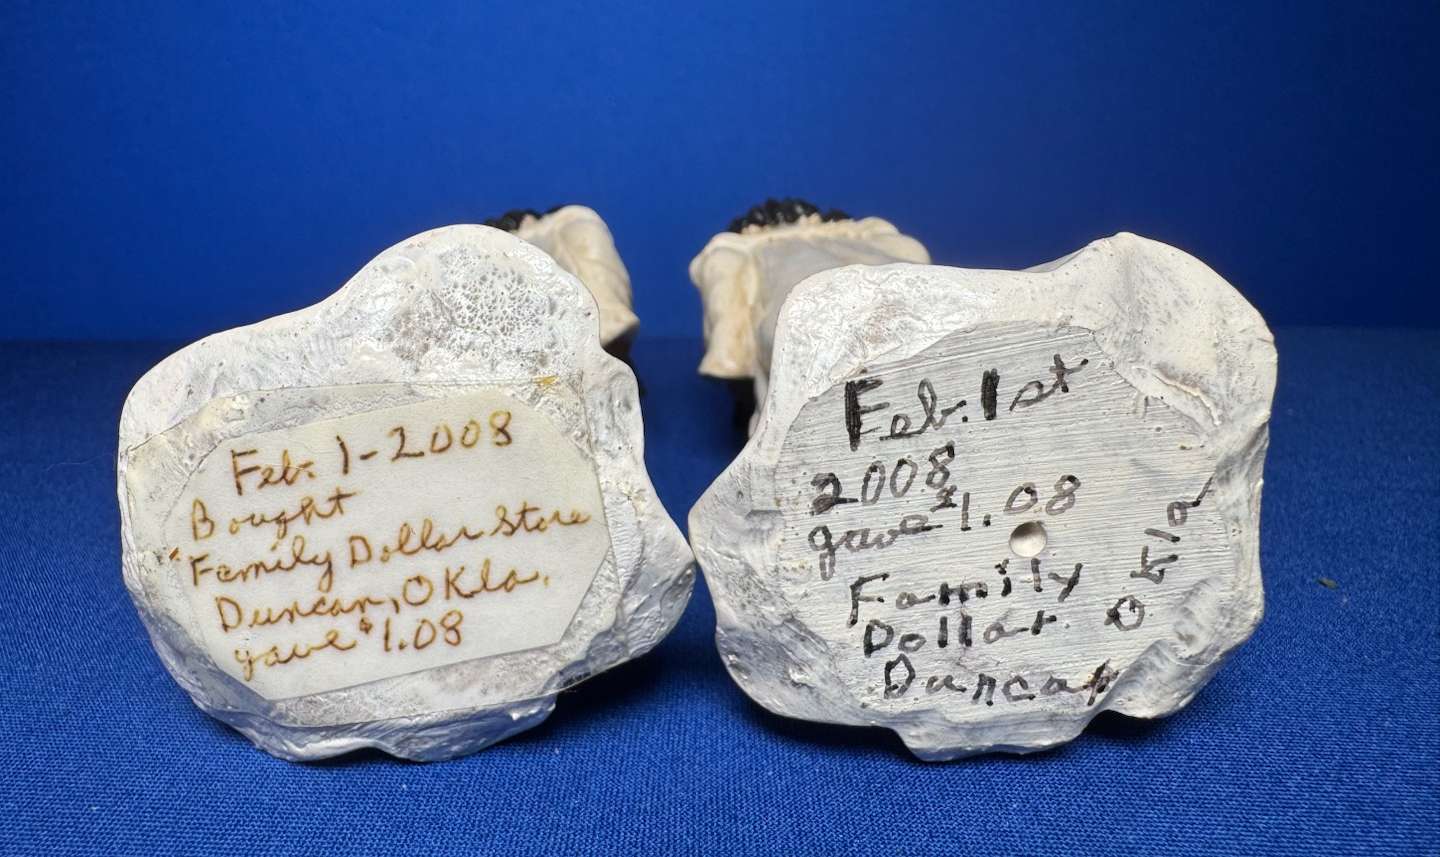 Feb. 1-2008
Bought
Family Dollar Store
Duncan, Okla.
gave $1.08
Feb. 1st
2008
gave $1.08
Family
Dollar.
Duncan
Okla